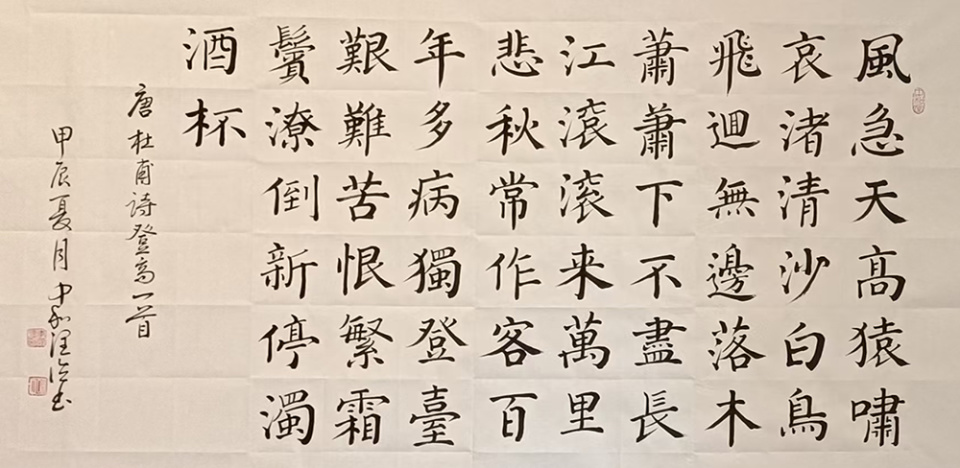 風急天高猿嘯
哀渚清沙白鳥
飛迴無邊落木
蕭蕭下不盡長
江滾滾来萬里
悲秋常作客百
年多病獨登臺
艱難苦恨繁霜
鬢潦倒新停濁
酒杯
唐杜甫詩登高一首
甲辰夏月